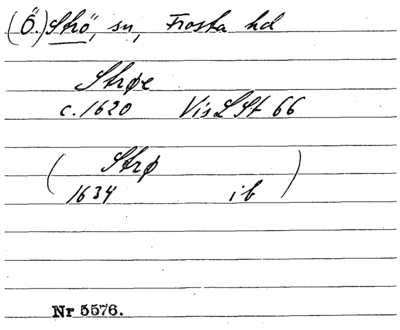 (Ö.) Strö, sn, Frosta hd
Strøe
c. 1620 Vis LSt 66
( Strø )
1634 ib
Nr 5576.